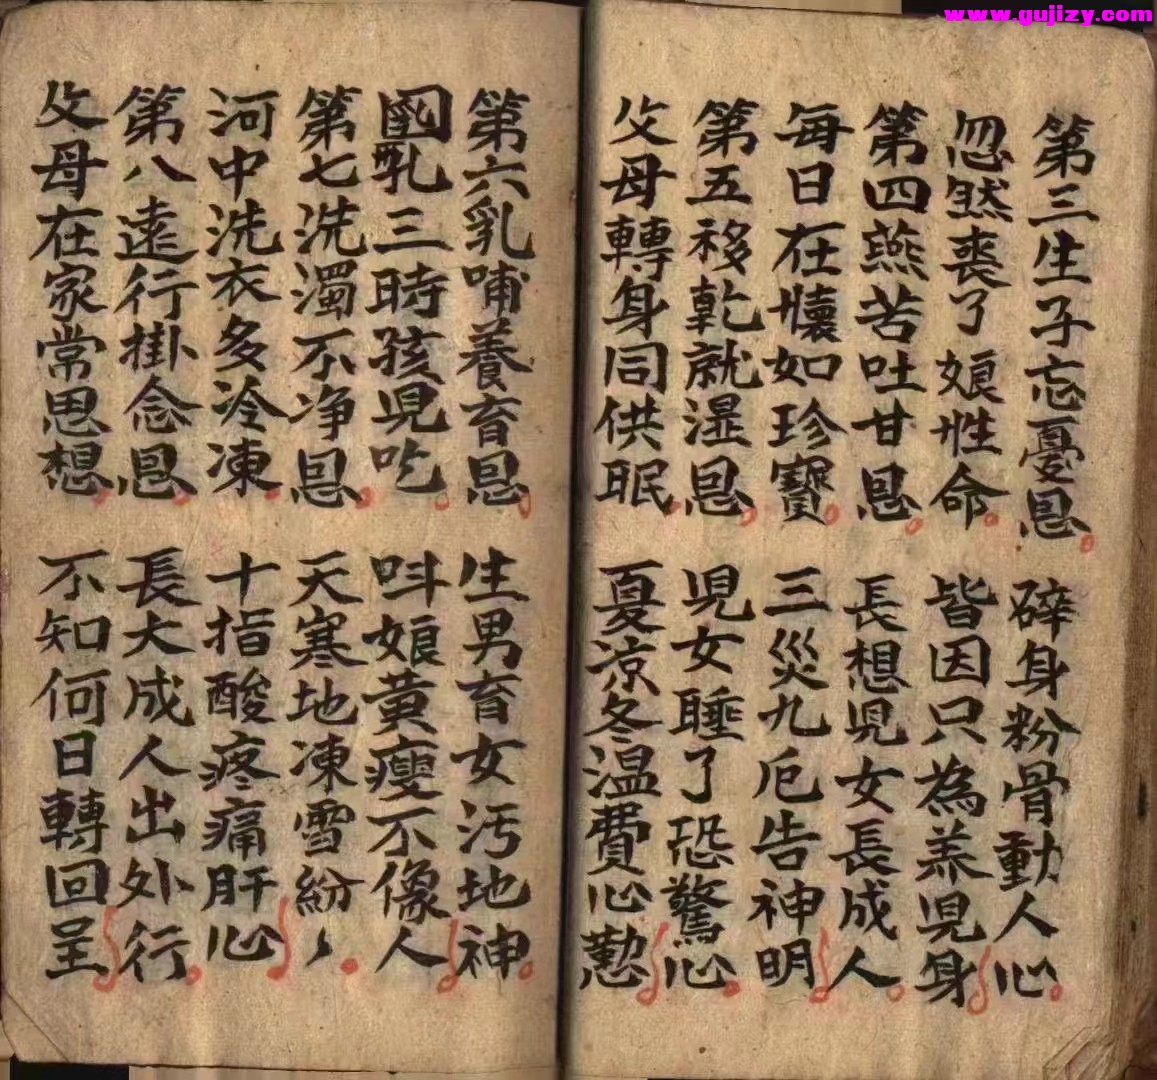 www.gujizy.com
第三生子忘憂恩 碎身粉骨動人心
忽然喪了娘性命 皆因只為养兒身
第四燕苦吐甘恩 長想兒女長成人
每日在懐如珍寶 三災九厄告神明
第五移乾就湿恩 兒女睡了恐驚心
父母轉身同供眠 夏凉冬温費心懃
第六乳哺養育恩 生男育女汚地神
乳三時孩兒吃 呌娘黄瘦不像人
第七洗濁不净恩 天寒地凍雪紛丶
河中洗衣多冷凍 十指酸疼痛肝心
第八遠行掛念恩 長大成人出外行
父母在家常思想 不知何日轉回呈